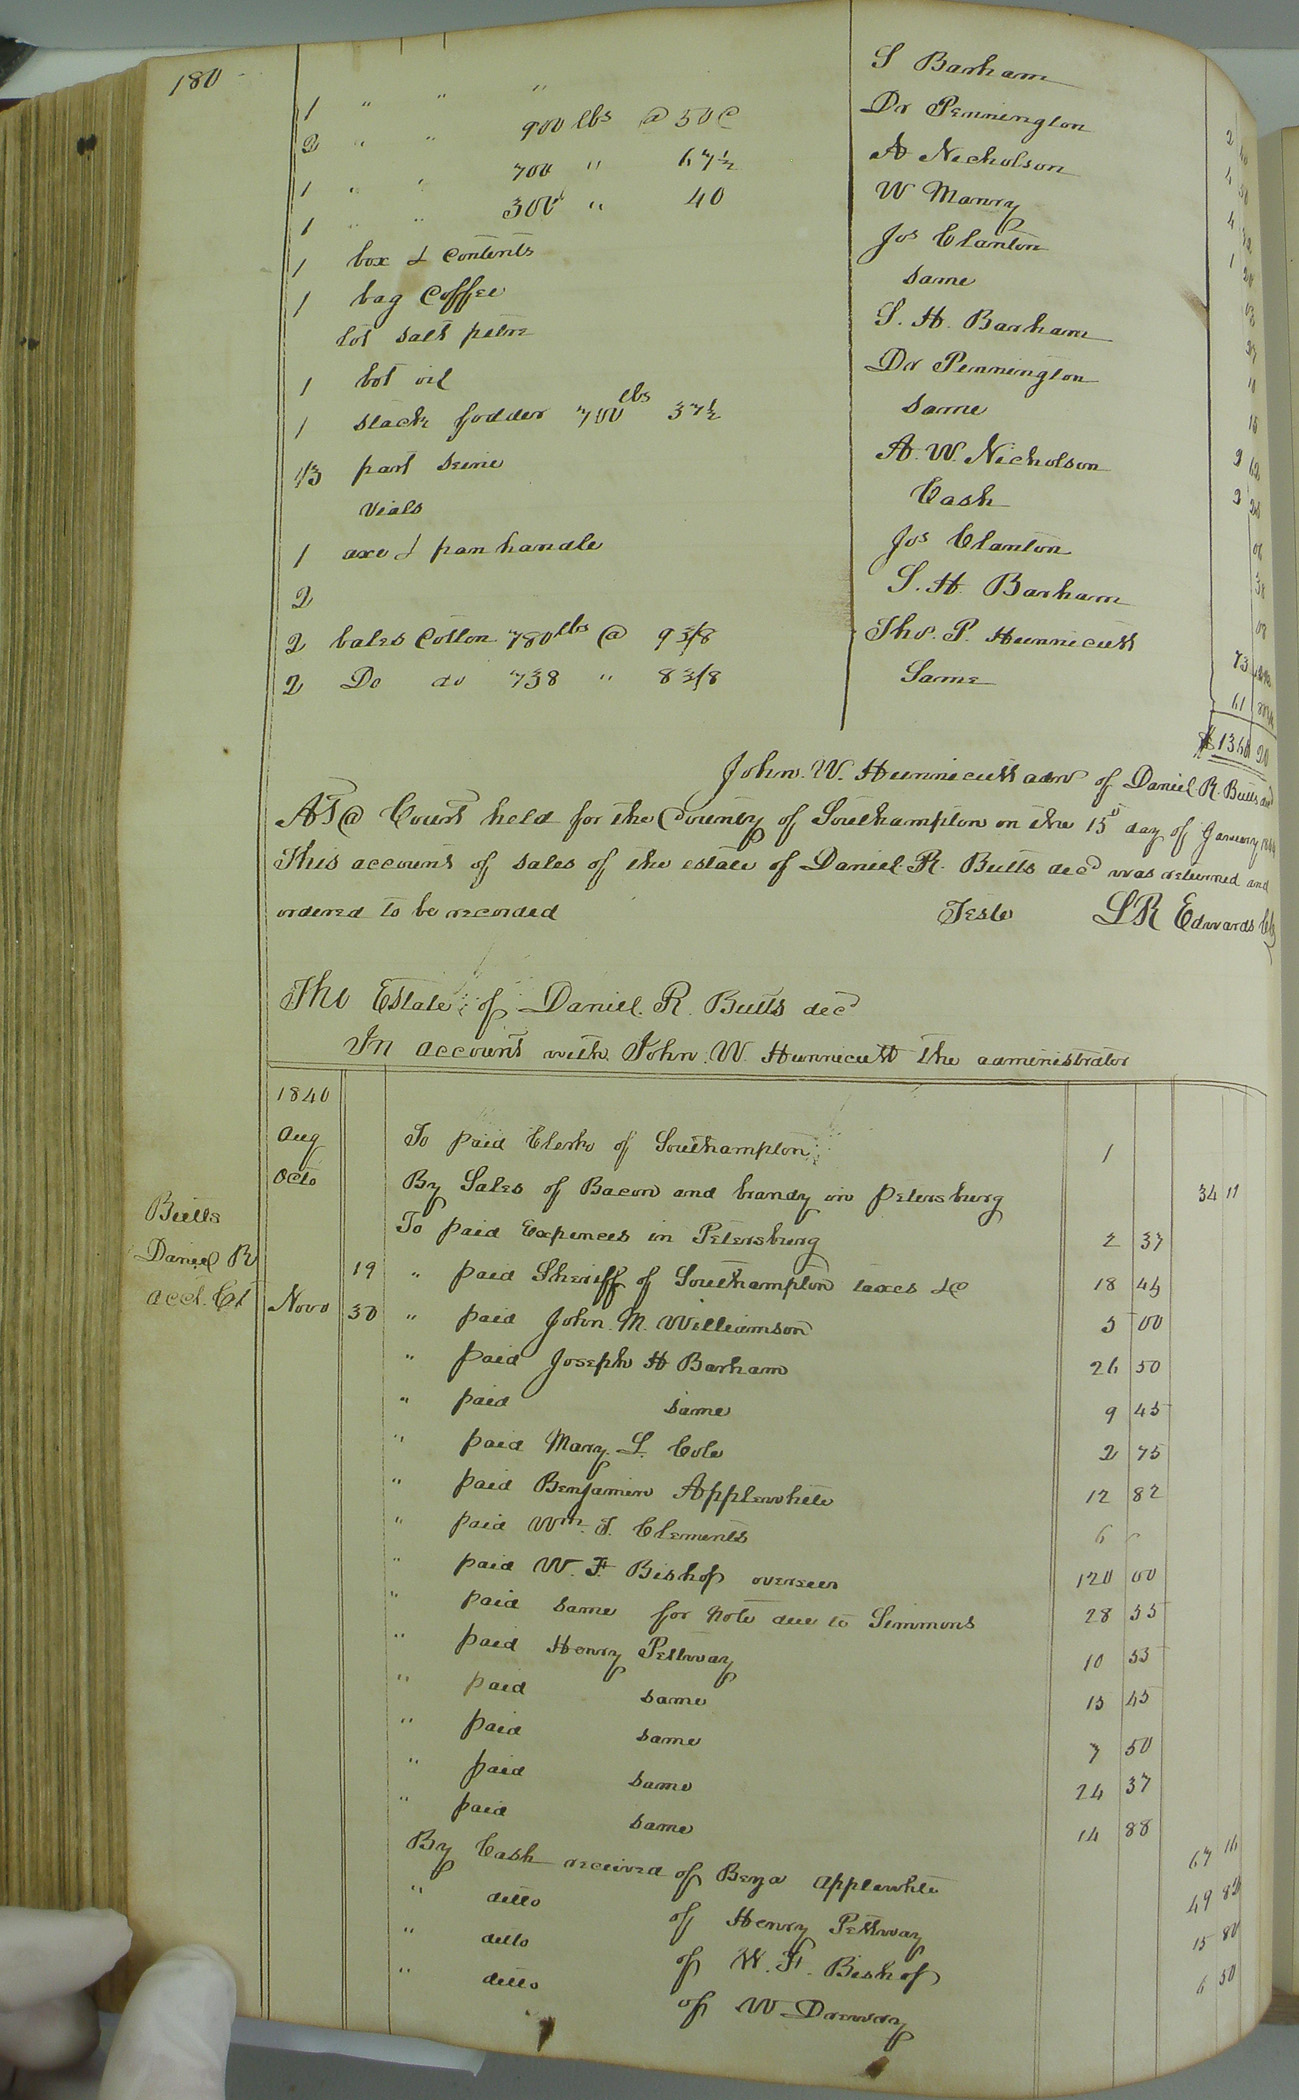 180
1 " " " S Barham
2 " " 900 lbs @ 50 C Dr Pennington 2
1 " " 700 " 67½ A Nicholson 4 50
1 " " 300 " 40 W Manry 4
1 box & contents Jos Clanton 1 20
1 bag Coffee same
lot salt petre S. H. Barham
1 bot oil Dr Pennington 10
1 stack fodder 700 lbs 37½ same 15
1/3 part seine A. W. Nicholson 2 62
vials Cash 2
1 axe & pan handle Jos Clanton
2 S. H. Barham 38
2 bales Cotton 780 lbs @ 9 3/8 Thos. P. Hunnicutt
2 Do do 738 " 8 3/8 Same 73
61
$ 20
John. W. Hunnicutt adm of Daniel. R. Butts decd
At a Court held for the County of Southampton on the 15th day of January
This account of sales of the estate of Daniel. R. Butts decd was returned and
ordered to be recorded Teste L R Edwards Clk
The Estate of Daniel. R. Butts decd
In account with John. W. Hunnicutt the administrator
1840
Aug To paid Clerk of Southampton 1
Octo By Sales of Bacon and brandy in Petersburg 34 11
Butts To paid Expences in Petersburg 2 37
Daniel R 19 " paid Sheriff of Southampton taxes &c 18 44
acct. Ct Novo 30 " paid John. M. Williamson 5 00
" paid Joseph H Barham 26 50
" paid same 9 45
" paid Mary. L. Cole 2 75
" paid Benjamin Applewhite 12 82
" paid Wm. J. Clements 6
" paid W. F. Bishop overseer 120 00
" paid same for note due to Simmons 28 55
" paid Henry Pettway 10 55
" paid same 15 45
" paid same 7 50
" paid same 24 37
" paid same 14 88
By Cash received of Benja Applewhite 67 16
" ditto of Henry Pettway 49 82
" ditto of W. F. Bishop 15 80
" ditto of W Drewry 6 50